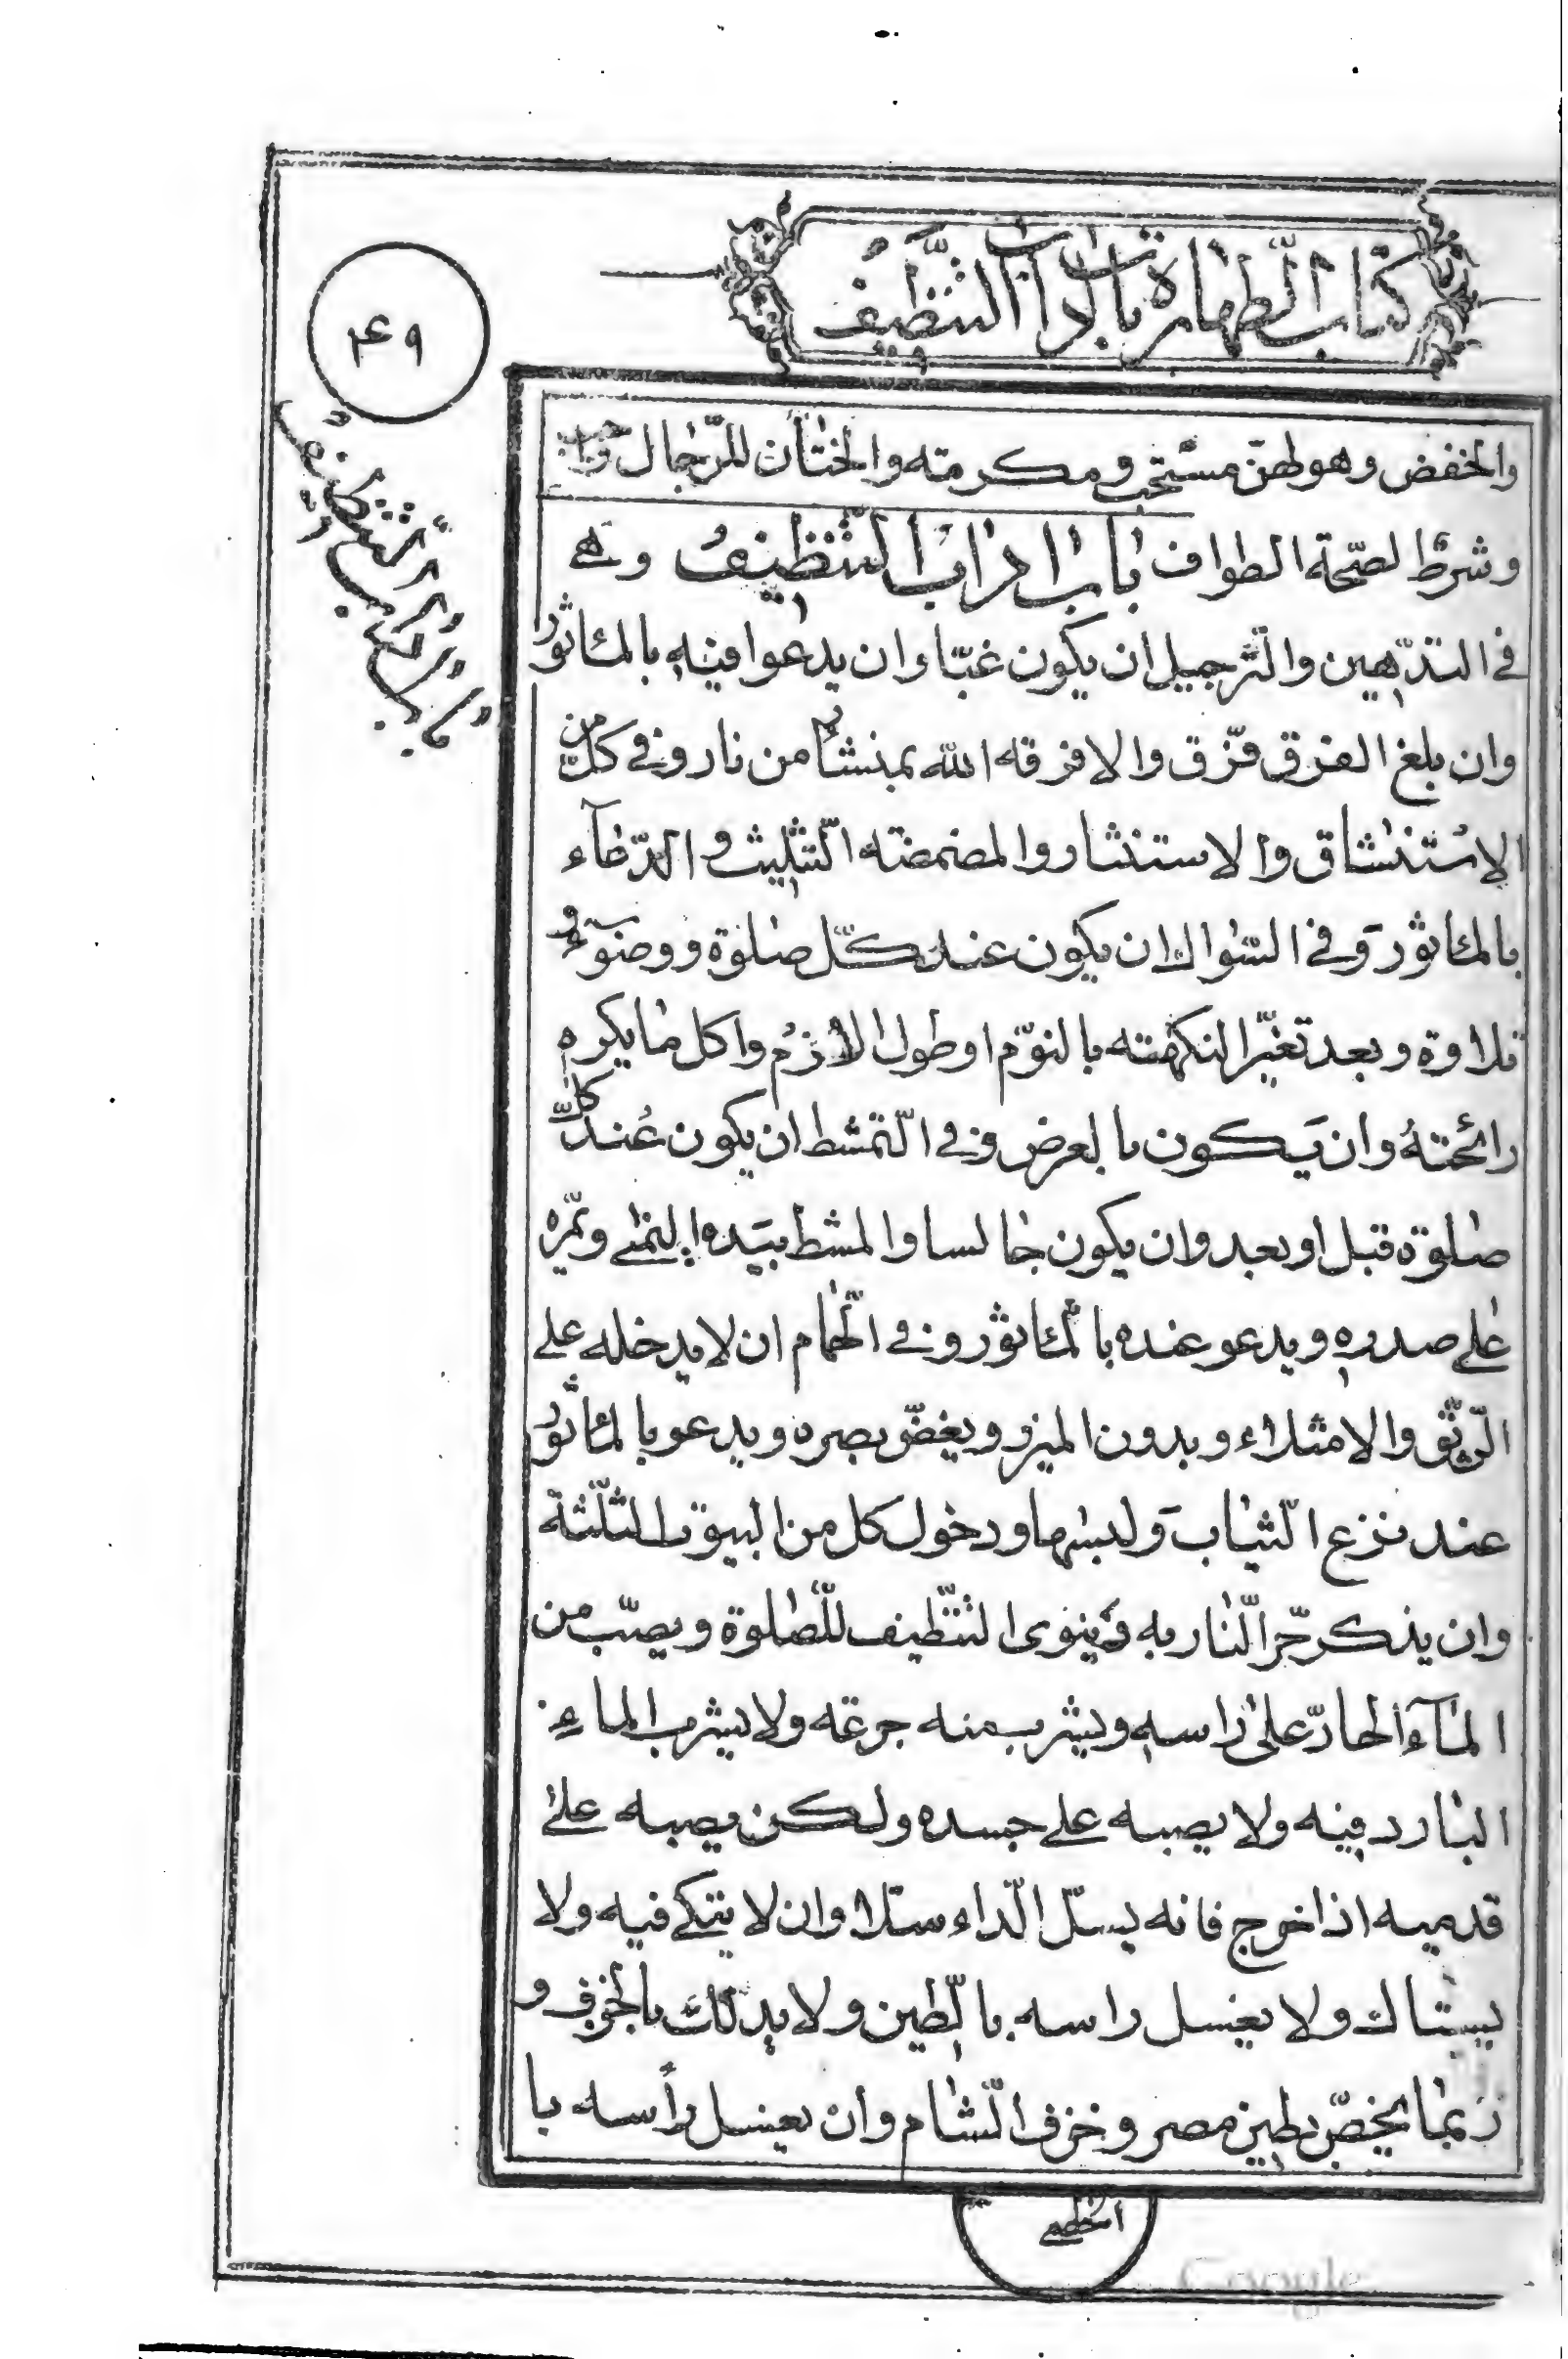 كتاب الطهارة باب آداب التنظيف
۴۹
والخفض وهو لهنّ مستحب ومكرمته والختان للرّجال واجب
وشرط لصحّة الطواف باب آداب التنظيف وهى
في التدهين والترجيل ان يكون غبّا وان يدعوا فيه بالمأثور
وان بلغ الفرق فرّق والا فرقه الله بمنشار من نار وفى كل من
الاستنشاق والاستنثار والمضمضته التثليث والدّعاء
بالمأثور وفي السّواك ان يكون عند كلّ صلوة ووضوء و
تلاوة وبعد تغيّر النكهته بالنوّم او طول الازم واكل ما يكره
رائحته وان يكون بالعرض وفى التمشط ان يكون عند كلّ
صلوة قبل او بعد وان يكون جالسا والمشط بيده اليمنى ويمرّه
على صدره ويدعو عنده بالمأثور وفى الحمّام ان لا يدخله على
الرّيق والامتلاء وبدون الميزر ويغضّ بصره ويدعو بالمأثور
عند نزع الثياب ولبسها ودخول كل من البيوت الثلثة
وان يذكر حرّ النار به وينوى التنظيف للصّلوة ويصبّ من
المآء الحارّ على راسه ويشرب منه جرعة ولا يشرب الماء
البارد فيه ولا يصبه على جسده ولكن يصبه على
قدميه اذا خرج فانه يسلّ الدّاء سلّا وان لا يتكى فيه ولا
يستاك ولا يغسل راسه بالطين ولا يدلك بالخزف و
ربما يخصّ بطين مصر وخزف الشام وان يغسل رأسه با
الخطمى